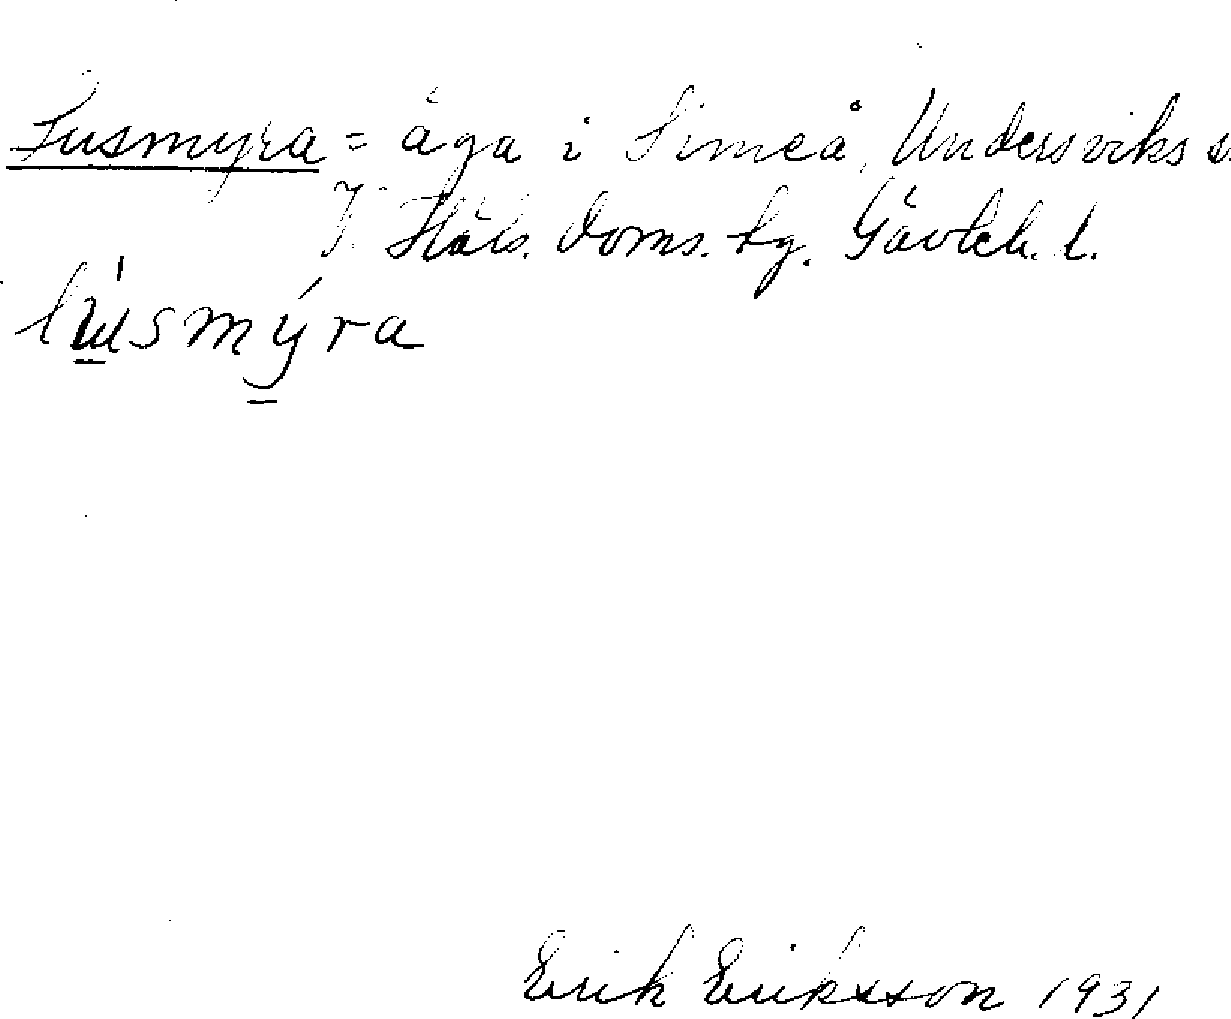 Lusmyra = äga i Simeå, Undersviks s
V. Häls. doms. tg. Gävleb. l.
lúsmýra
Erik Eriksson 1931